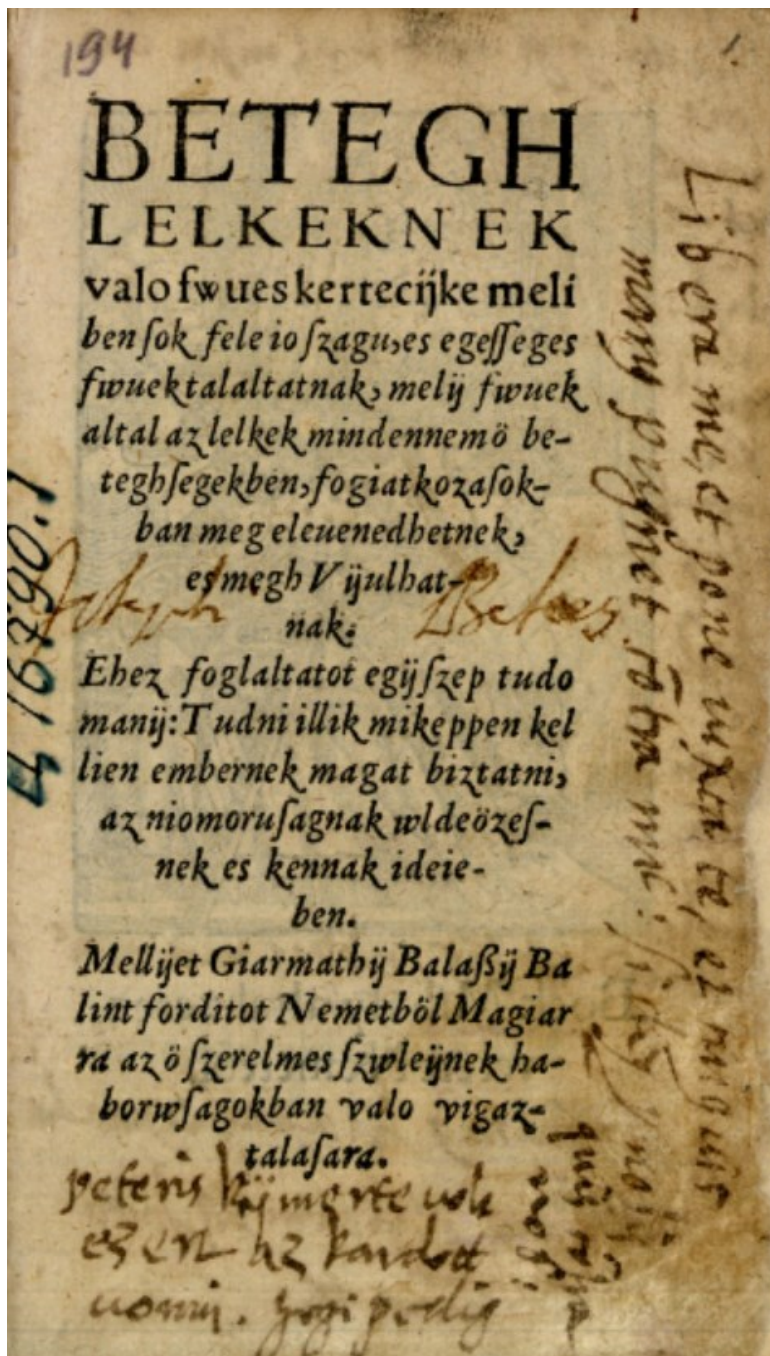 194
1.
BETEGH
LELKEKNEK
valo fwues kertecijke meli
ben ſok fele io ſzagu, es egeſſeges
fwuek talaltatnak, melij fwuek
altal az lelkek mindennemö be-
teghſegekben, fogiatkozaſok-
ban meg eleuenedhetnek,
es megh Vijulhat-
nak.
Ehez foglaltatot egij ſzep tudo
manij: Tudni illik mikeppen kel
lien embernek magat biztatni,
az niomoruſagnak wldeözeſ-
nek es kennak ideie-
ben.
Mellijet Giarmathij Balaßij Ba
lint forditot Nemetböl Magiar
ra az ö ſzerelmes ſzwleijnek ha-
borwſagokban valo vigaz-
talaſara.
Libera me, et pone iuxta te, et
pugnet
peteris
ezert az kardott